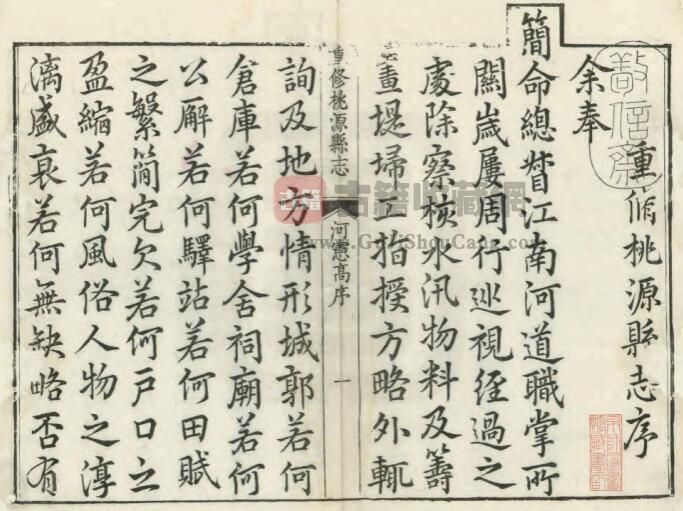 重修桃源縣志序
余奉
簡命總督江南河道職掌所
關嵗屢周行巡視経過之
處除察核水汛物料及籌
畫堤埽工指授方略外輒
重修桃源縣志
河憲高序
一
詢及地方情形城郭若何
倉庫若何學舍祠廟若何
公廨若何驛站若何田賦
之繁簡完欠若何戸口之
盈縮若何風俗人物之淳
漓盛衰若何無缺略否有
古籍收藏网